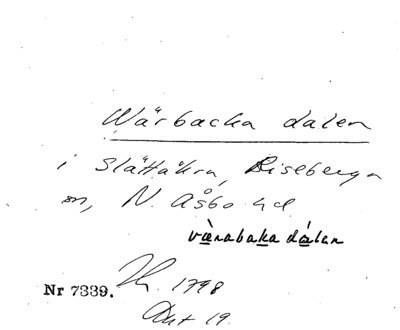 Wärbacka dalen
i Slättåkra, Riseberga
sn, N. Åsbo hd
värabaka dálen
Nr 7339. 1798
Akt 19.